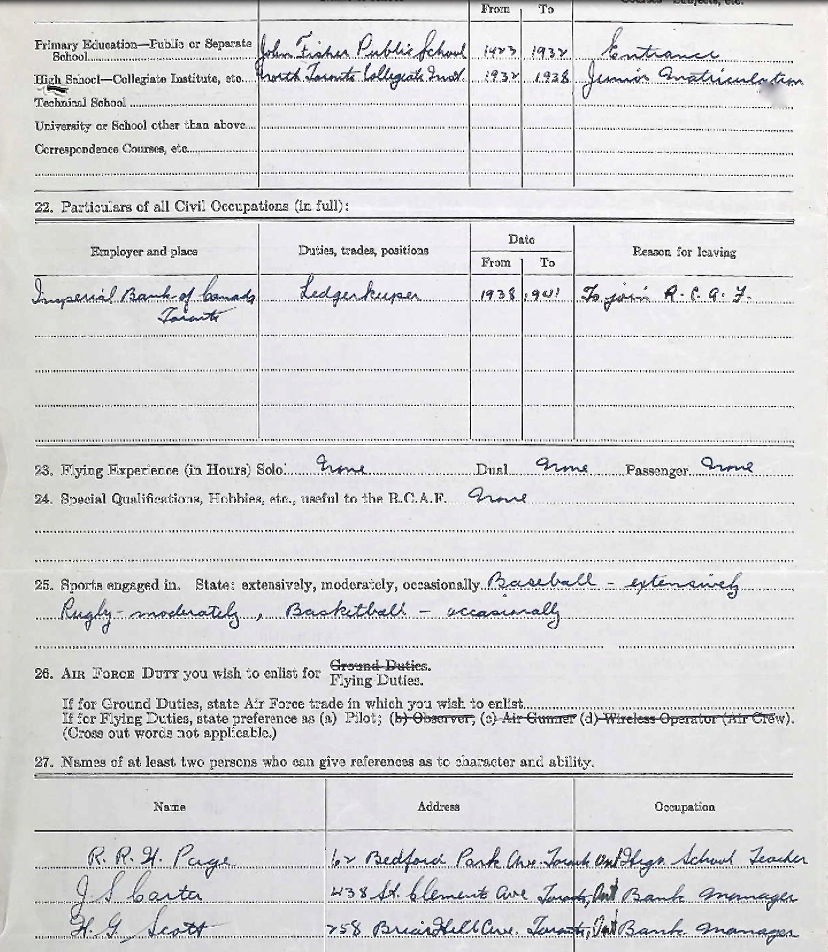 From To
Primary Education—Public or Separate
School John Fisher Public School 1923 1932 Entrance
High School—Collegiate Institute, etc. North Toronto Collegiate Inst. 1932 1938 Junior Matriculation
Technical School
University or School other than above
Correspondence Courses, etc.
22. Particulars of all Civil Occupations (in full):
Employer and place Duties, trades, positions Date Reason for leaving
From To
Imperial Bank of Canada Ledgerkeeper 1938 1941 To join R.C.A.F.
Toronto
23. Flying Experience (in Hours) Solo None Dual None Passenger None
24. Special Qualifications, Hobbies, etc., useful to the R.C.A.F. None
25. Sports engaged in. State: extensively, moderately, occasionally Baseball – extensively
Rugby – moderately, Basketball – occasionally
26. AIR FORCE DUTY you wish to enlist for Ground Duties.
Flying Duties.
If for Ground Duties, state Air Force trade in which you wish to enlist
If for Flying Duties, state preference as (a) Pilot; (b) Observer; (c) Air Gunner (d) Wireless Operator (Air Crew).
(Cross out words not applicable.)
27. Names of at least two persons who can give references as to character and ability.
Name Address Occupation
R. R. H. Paige 62 Bedford Park Ave. Toronto Ont High School Teacher
J S Carter 438 St. Clement Ave Toronto, Ont Bank Manager
H. G. Scott 258 Briar Hill Ave. Toronto, Ont Bank Manager